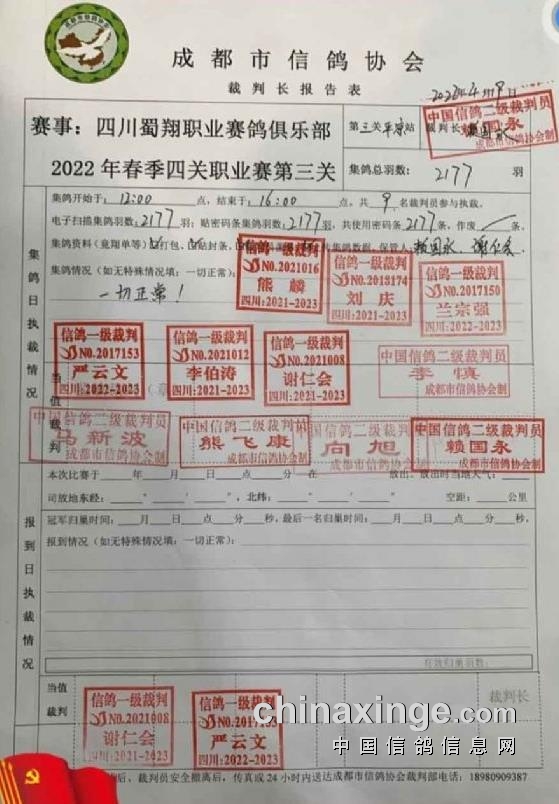 成都市信鸽协会
裁判长报告表
2022年4月19日
赛事：四川蜀翔职业赛鸽俱乐部
2022年春季四关职业赛第三关
第三关 站
裁判长
中国信鸽二级裁判员
赖国永
成都市信鸽协会制
集鸽总羽数：2177 羽
集鸽日执裁情况
集鸽开始于：12:00 点，结束于：16:00 点，共 9 名裁判员参与执裁。
电子扫描集鸽羽数：2177 羽；贴密码条集鸽羽数：2177 羽，共使用密码 2177 条，作废 条。
集鸽资料（竟翔单等）打包、贴封条，集鸽数据，保管人：赖国永 谢仁会
集鸽情况（如无特殊情况填：一切正常）：
一切正常！
信鸽一级裁判
NO.2021016
熊麟
四川：2021-2023
信鸽一级裁判
NO.2013174
刘庆
四川：2021-2023
信鸽一级裁判
NO.2017150
兰宗强
四川：2021-2023
信鸽一级裁判
NO.2017153
严云文
四川：2022-2023
信鸽一级裁判
NO.2021012
李伯涛
四川：2021-2023
信鸽一级裁判
NO.2021008
谢仁会
四川：2021-2023
中国信鸽二级裁判员
李慎
成都市信鸽协会制
当值裁判
中国信鸽二级裁判员
马新波
成都市信鸽协会制
中国信鸽二级裁判员
熊飞康
成都市信鸽协会制
中国信鸽二级裁判员
向旭
成都市信鸽协会制
中国信鸽二级裁判员
赖国永
成都市信鸽协会制
本次比赛于 年 月 日 点 分 在 放出，放出时当地天气：
司放地东经： ° ′ ″，北纬： ° ′ ″ 空距： 公里
报到日执裁情况
冠军归巢时间： 月 日 点 分 秒，最后一名归巢时间： 月 日 点 分 秒。
报到情况（如无特殊情况填：一切正常）：
有效归巢羽数：
当值裁判
信鸽一级裁判
NO.2021008
谢仁会
四川：2021-2023
信鸽一级裁判
NO.2017153
严云文
四川：2022-2023
裁判长
chinaxinge.com
中国信鸽信息网
后，裁判员安全撤离后，传真或24小时内送达成都市信鸽协会裁判部电话：18980909387